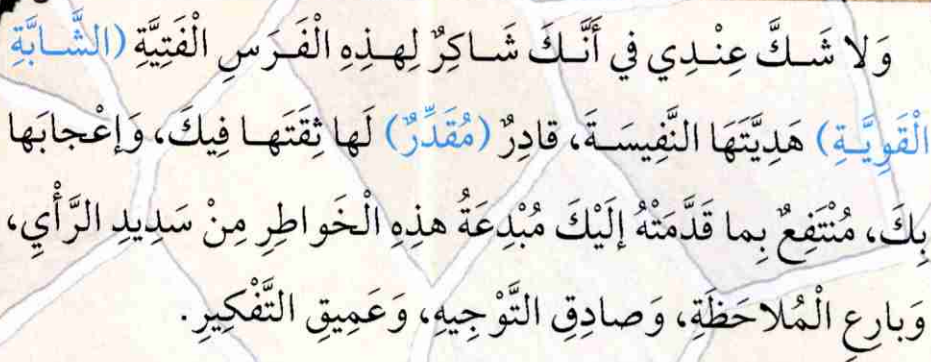 وَلا شَـكَّ عِنْـدِي في أَنَّـكَ شَـاكِرٌ لِهـذِهِ الْفَـرَسِ الْفَتِيَّةِ (الشَّـابَّةِ
الْقَوِيَّـةِ) هَدِيَّتَهَا النَّفِيسَـةَ، قادِرٌ (مُقَدِّرٌ) لَها ثِقَتَهـا فِيكَ، وَإعْجابَها
بِكَ، مُنْتَفِعٌ بِما قَدَّمَتْهُ إلَيْكَ مُبْدِعَةُ هذِهِ الْخَواطِرِ مِنْ سَدِيدِ الرَّأْيِ،
وَبارِعِ الْمُلاحَظَةِ، وَصادِقِ التَّوْجِيهِ، وَعَمِيقِ التَّفْكِيرِ.